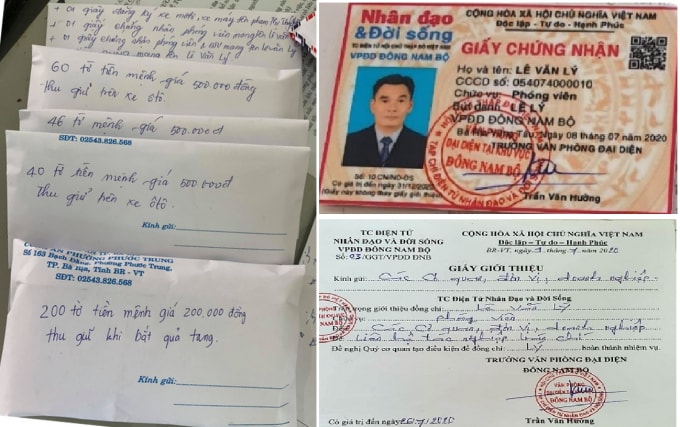 + 01 giấy đăng ký xe môtô, xe máy tên phan Thị
+ 01 giấy chứng nhận phóng viên mang tên lê văn
+ 01 giấy chứng nhận phóng viên mang tên lê văn Lý
mang tên Lê Văn Lý
60 tờ tiền mệnh giá 500.000 đồng
thu giữ trên xe ôtô.
46 tờ mệnh giá 500.000đ
SĐT: 02543.826.568
40 tờ tiền mệnh giá 500.000đ
thu giữ trên xe ôtô.
Kính gửi:
CÔNG AN PHƯỜNG PHƯỚC TRUNG
Số 163 Bạch Đằng, Phường Phước Trung,
TP. Bà Rịa, Tỉnh BR - VT
SĐT: 02543.826.568
200 tờ tiền mệnh giá 200.000 đồng
thu giữ khi bắt quả tang.
Kính gửi:
Nhân đạo
& Đời sống
TC ĐIỆN TỬ
VPĐD ĐÔNG NAM BỘ
CỘNG HÒA XÃ HỘI CHỦ NGHĨA VIỆT NAM
Độc lập - Tự do - Hạnh Phúc
GIẤY CHỨNG NHẬN
Họ và tên: LÊ VĂN LÝ
CCCD số: 054074000010
Chức vụ: Phóng viên
Bút danh: LÊ LÝ
VPĐD ĐÔNG NAM BỘ
Bà Rịa Vũng Tàu, Ngày 08 tháng 07 năm 2020
TRƯỞNG VĂN PHÒNG ĐẠI DIỆN
ĐẠI DIỆN TẠI KHU VỰC
ĐÔNG NAM BỘ
TẠP CHÍ ĐIỆN TỬ NHÂN ĐẠO VÀ ĐỜI SỐNG
Số: 10 CN/NĐ-ĐS
Có giá trị đến ngày 31/12/2020
(Giấy này không thay giấy giới thiệu)
Trần Văn Hưởng
TC ĐIỆN TỬ
NHÂN ĐẠO VÀ ĐỜI SỐNG
VPĐD ĐÔNG NAM BỘ
Số: 03/GGT/VPĐD ĐNB
CỘNG HÒA XÃ HỘI CHỦ NGHĨA VIỆT NAM
Độc lập – Tự do – Hạnh Phúc
BR-VT, ngày tháng 7 năm 2020
GIẤY GIỚI THIỆU
Kính gửi: Các Cơ quan, đơn vị, doanh nghiệp
TC Điện Tử Nhân Đạo và Đời Sống
Trân trọng giới thiệu đồng chí: Lê Văn Lý
Phóng viên
Các Cơ quan, đơn vị, doanh nghiệp
Liên hệ tác nghiệp báo chí
Đề nghị Quý cơ quan tạo điều kiện để đồng chí: LÝ hoàn thành nhiệm vụ.
TRƯỞNG VĂN PHÒNG ĐẠI DIỆN
ĐÔNG NAM BỘ
VĂN PHÒNG
Có giá trị đến ngày 2020
Trần Văn Hưởng